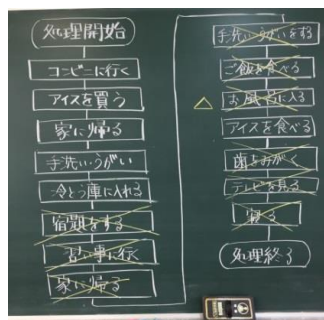 処理開始
コンビニに行く
アイスを買う
家に帰る
手洗い・うがい
冷とう庫に入れる
宿題をする
習い事に行く
家に帰る
手洗い・うがいをする
ご飯を食べる
△
お風呂に入る
アイスを食べる
歯をみがく
テレビを見る
寝る
処理終了